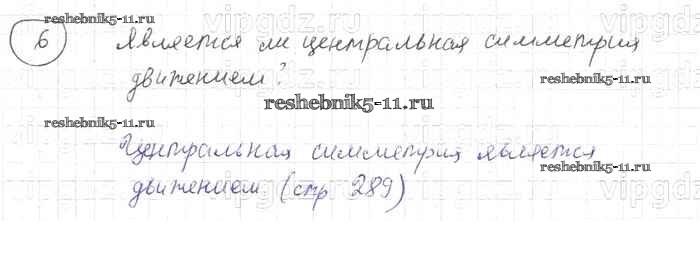 reshebnik5-11.ru
vipgdz.ru
6 Является ли центральная симметрия
движением?
reshebnik5-11.ru
reshebnik5-11.ru
vipgdz.ru
reshebnik5-11.ru
Центральная симметрия является
движением (стр 289)
vipgdz.ru
reshebnik5-11.ru